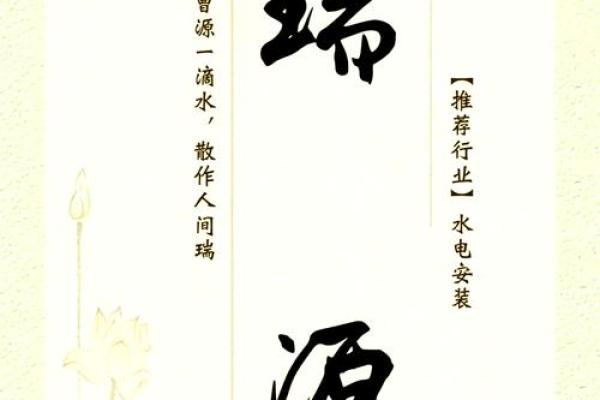 【推荐行业】水电安装
瑞源
曾源一滴水，散作人间瑞